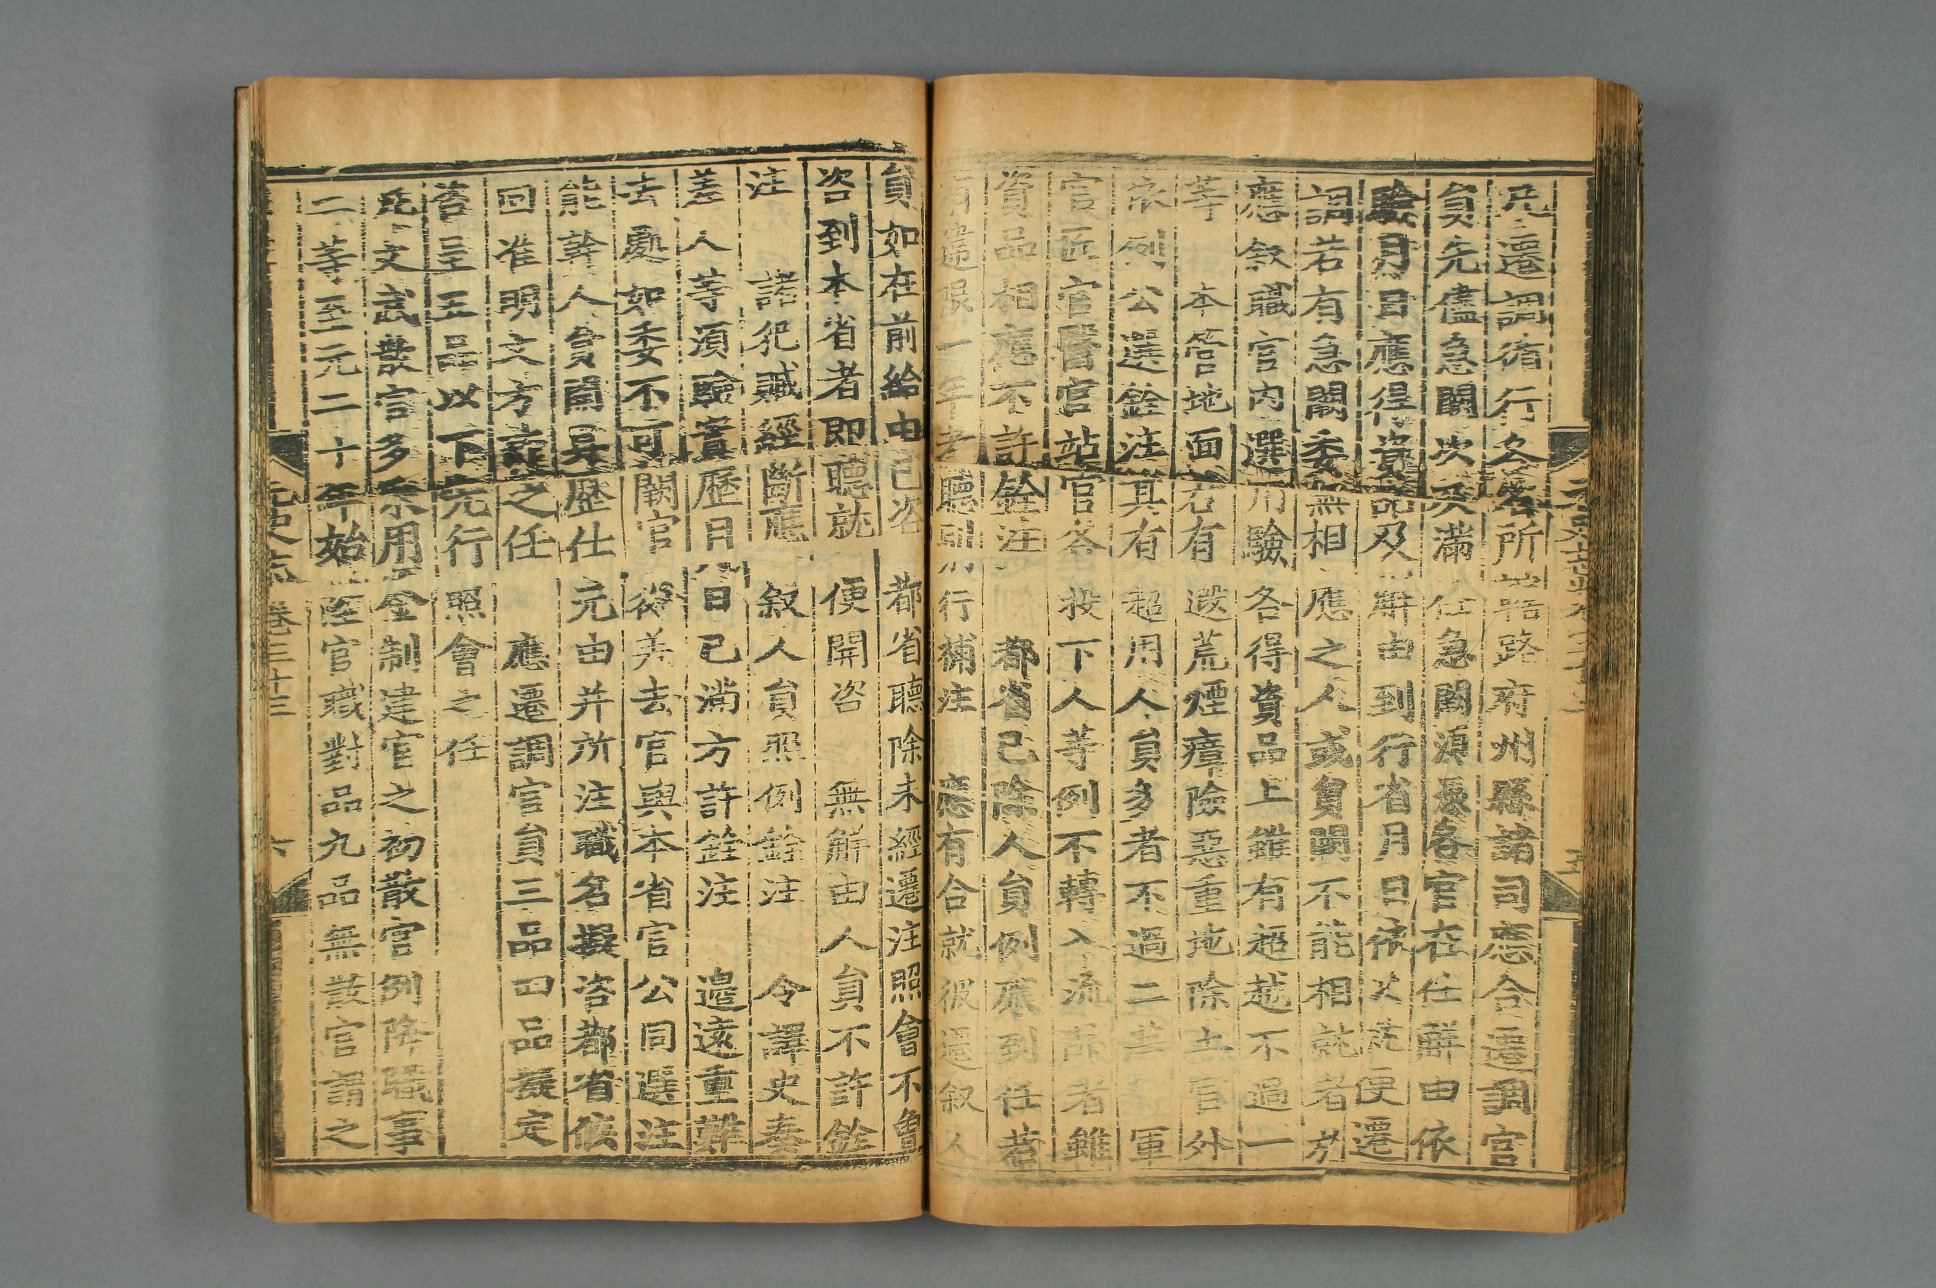 凡遷調循行各省所轄路府州縣諸司應合遷調官
員先儘急闕次及滿任急闕須憑各官在任解由依
驗月日應得資品及解由到行省月日依次就便遷
調若有急闕委無相應之人或員闕不能相就者於
應敘職官內選用驗各得資品上雖有超越不過一
等　本管地面若有遐荒煙瘴險惡重地除土官外
依例公選銓注其有超用人員多者不過二等　軍
官匠官醫官站官各投下人等例不轉入流品者雖
資品相應不許銓注　都省已除人員例應到任若
有違限一年者聽別行補注　應有合就彼遷敘人
員如在前給由已咨　都省聽除未經遷注照會不曾
咨到本省者即聽就便開咨　無解由人員不許銓
注　諸犯贓經斷應敘人員照例銓注　令譯史奏
差人等須驗實歷月日已滿方許銓注　邊遠重難
去處如委不可闕官從差去官與本省官公同選注
能幹人員開具歷仕元由并所注職名擬咨都省候
回准明文方許之任　應遷調官員三品四品擬定
咨呈五品以下先行照會之任
凡文武散官多采用金制建官之初散官例降職事
二等至元二十年始陞官職對品九品無散官謂之
元史志　卷三十三　六